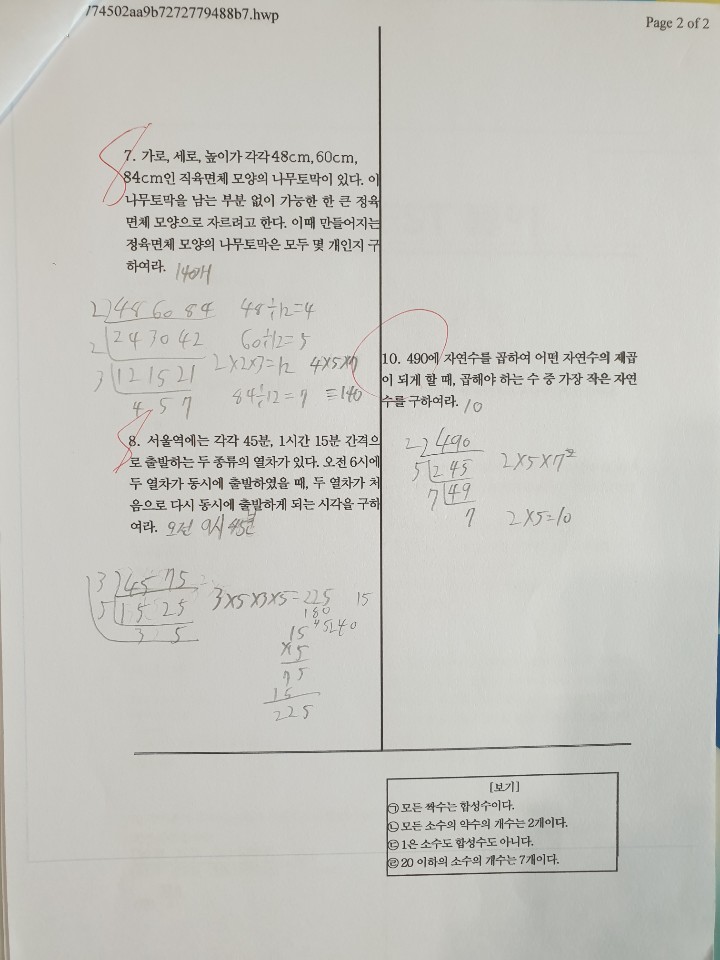 774502aa9b7272779488b7.hwp
Page 2 of 2
7. 가로, 세로, 높이가 각각 48cm, 60cm,
84cm인 직육면체 모양의 나무토막이 있다. 이
나무토막을 남는 부분 없이 가능한 한 큰 정육
면체 모양으로 자르려고 한다. 이때 만들어지는
정육면체 모양의 나무토막은 모두 몇 개인지 구
하여라. 140개
2)48 60 84 48÷12=4
2)24 30 42 60÷12=5
3)12 15 21 2×2×3=12 4×5×7
4 5 7 84÷12=7 =140
8. 서울역에는 각각 45분, 1시간 15분 간격으
로 출발하는 두 종류의 열차가 있다. 오전 6시에
두 열차가 동시에 출발하였을 때, 두 열차가 처
음으로 다시 동시에 출발하게 되는 시각을 구하
여라. 오전 9시 45분
3)45 75
5)15 25 3×5×3×5=225 15
3 5 180
15 45
×5
75
15
225
10. 490에 자연수를 곱하여 어떤 자연수의 제곱
이 되게 할 때, 곱해야 하는 수 중 가장 작은 자연
수를 구하여라. 10
2)490
5)245 2×5×7²
7)49
7 2×5=10
[보기]
㉠ 모든 짝수는 합성수이다.
㉡ 모든 소수의 약수의 개수는 2개이다.
㉢ 1은 소수도 합성수도 아니다.
㉣ 20 이하의 소수의 개수는 7개이다.